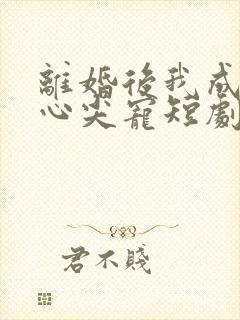 離婚後我成
心尖寵短劇
君不賤